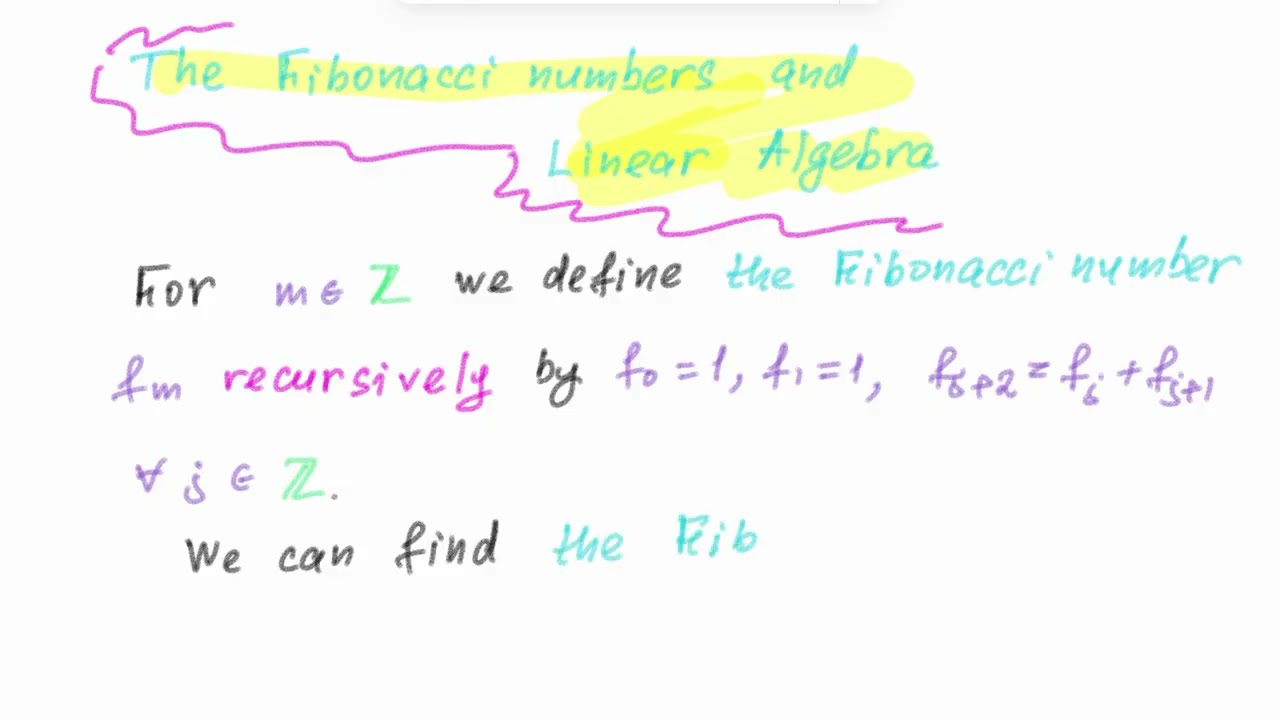 The Fibonacci numbers and
Linear Algebra
For m ∈ ℤ we define the Fibonacci number
fm recursively by f₀ = 1, f₁ = 1, fⱼ₊₂ = fⱼ + fⱼ₊₁
∀ j ∈ ℤ.
We can find the Fib